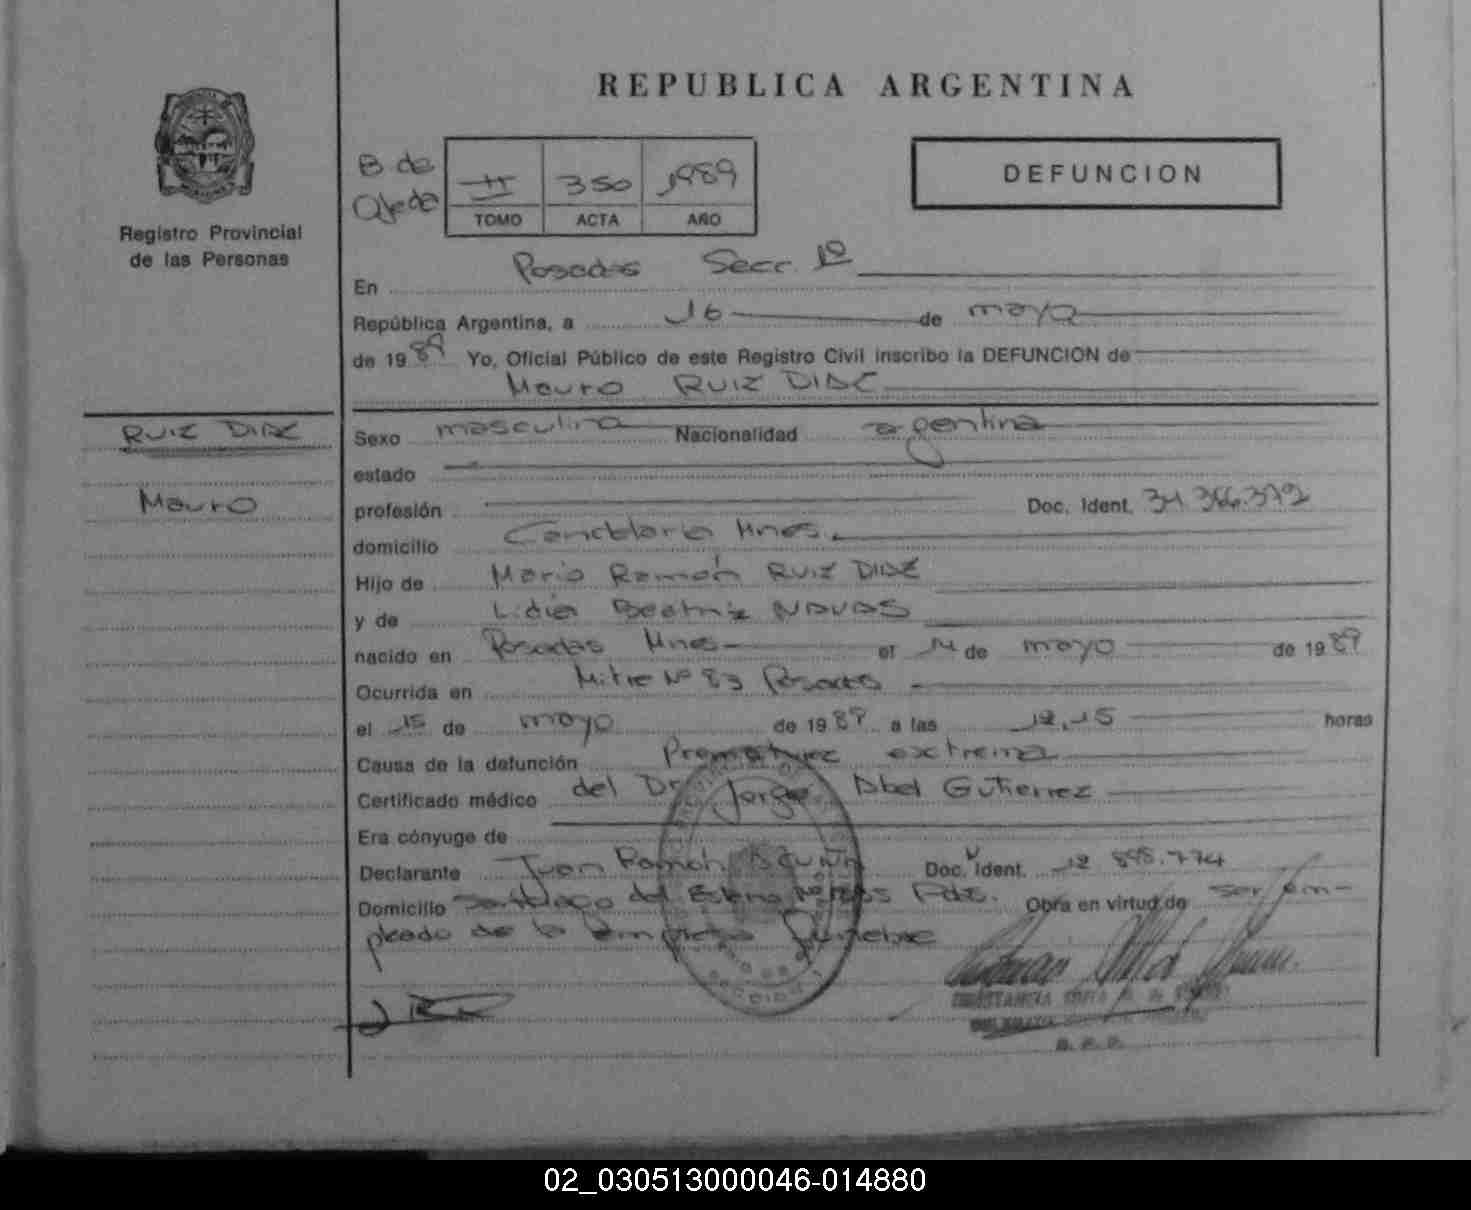 REPUBLICA ARGENTINA
Registro Provincial
de las Personas
B de
Ojeda
II 350 1989
TOMO ACTA AÑO
DEFUNCION
En Posadas Secc. 1º
República Argentina, a 16 de mayo
de 1989 Yo, Oficial Público de este Registro Civil inscribo la DEFUNCION de
Mauro RUIZ DIAZ
RUIZ DIAZ
Mauro
Sexo masculino Nacionalidad argentina
estado
profesión Doc. Ident. 34.366.372
domicilio Candelaria Mnes.
Hijo de Mario Ramón RUIZ DIAZ
y de Lidia Beatriz NAVAS
nacido en Posadas Mnes el 14 de mayo de 1989
Ocurrida en Mitre Nº 83 Posadas
el 15 de mayo de 1989 a las 12,15 horas
Causa de la defunción Prematurez extrema
Certificado médico del Dr Jorge Abel Gutierrez
Era cónyuge de
Declarante Juan Ramón Doc. Ident. 12.898.774
Domicilio Santiago del Estero Nº Pdas. Obra en virtud de ser em-
pleado de la empresa funebre
SECCION 1
02_030513000046-014880